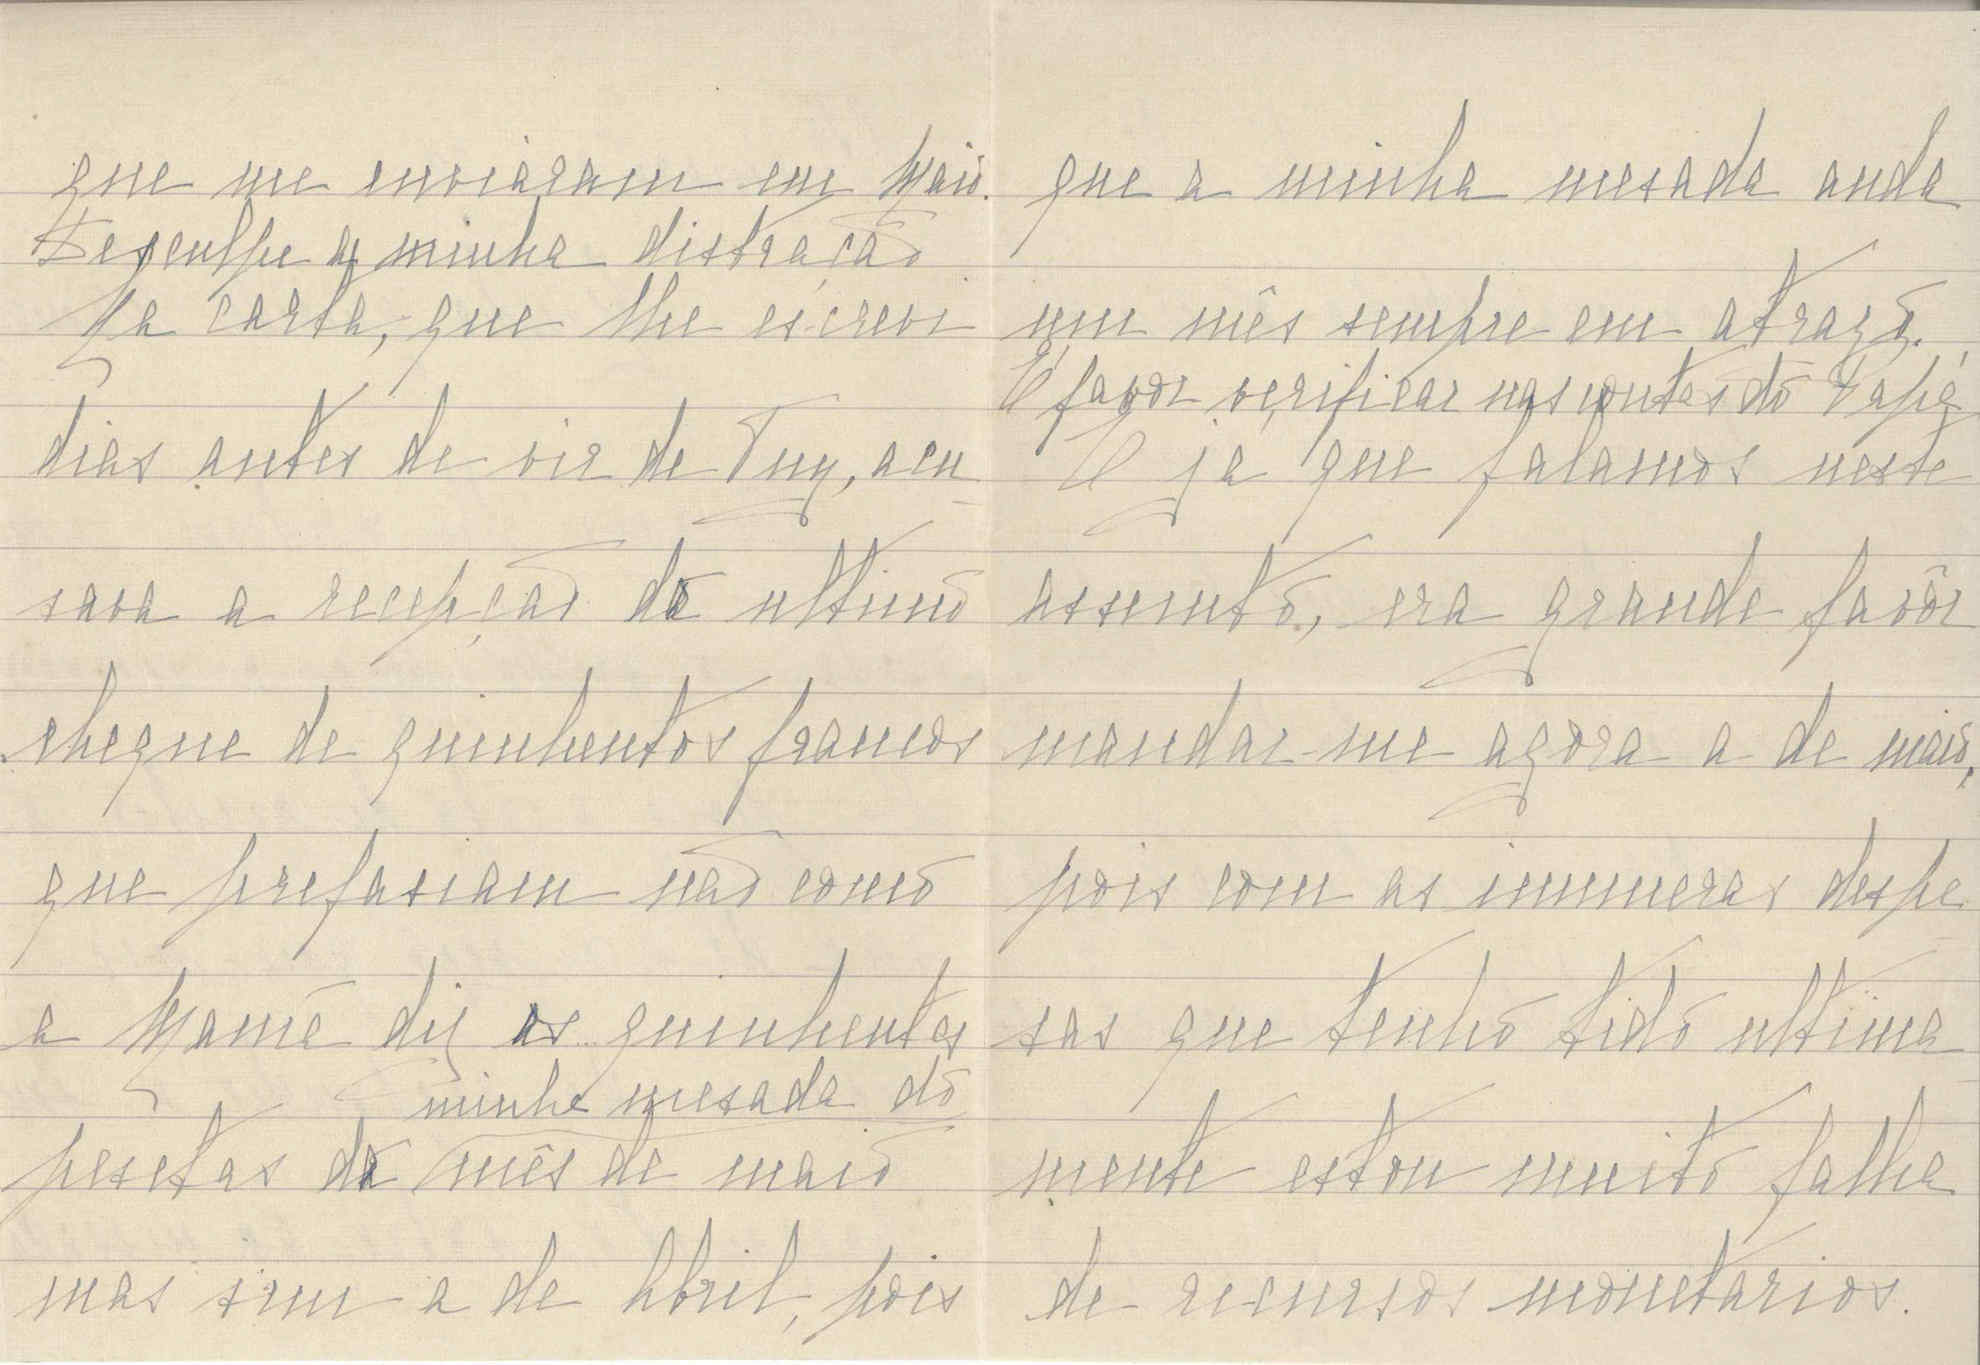 que me enviaram em Maio.
Desculpe a minha distração
Na carta, que lhe escrevi
dias antes de vir de Tuy, acu
sava a recepção do ultimo
cheque de quinhentos francos
que prefasiam não como
a Mamã diz as quinhentas
minha mesada do
pesetas da mês de maio
mas sim a de Abril, pois
que a minha mesada anda
um mês sempre em atrazo.
É favor verificar nas contas do Papá
E ja que falamos neste
assunto, era grande favôr
mandar-me agora a de maio,
pois com as inumeras despe
sas que tenho tido ultima
mente estou muito falha
de recursos monetarios.